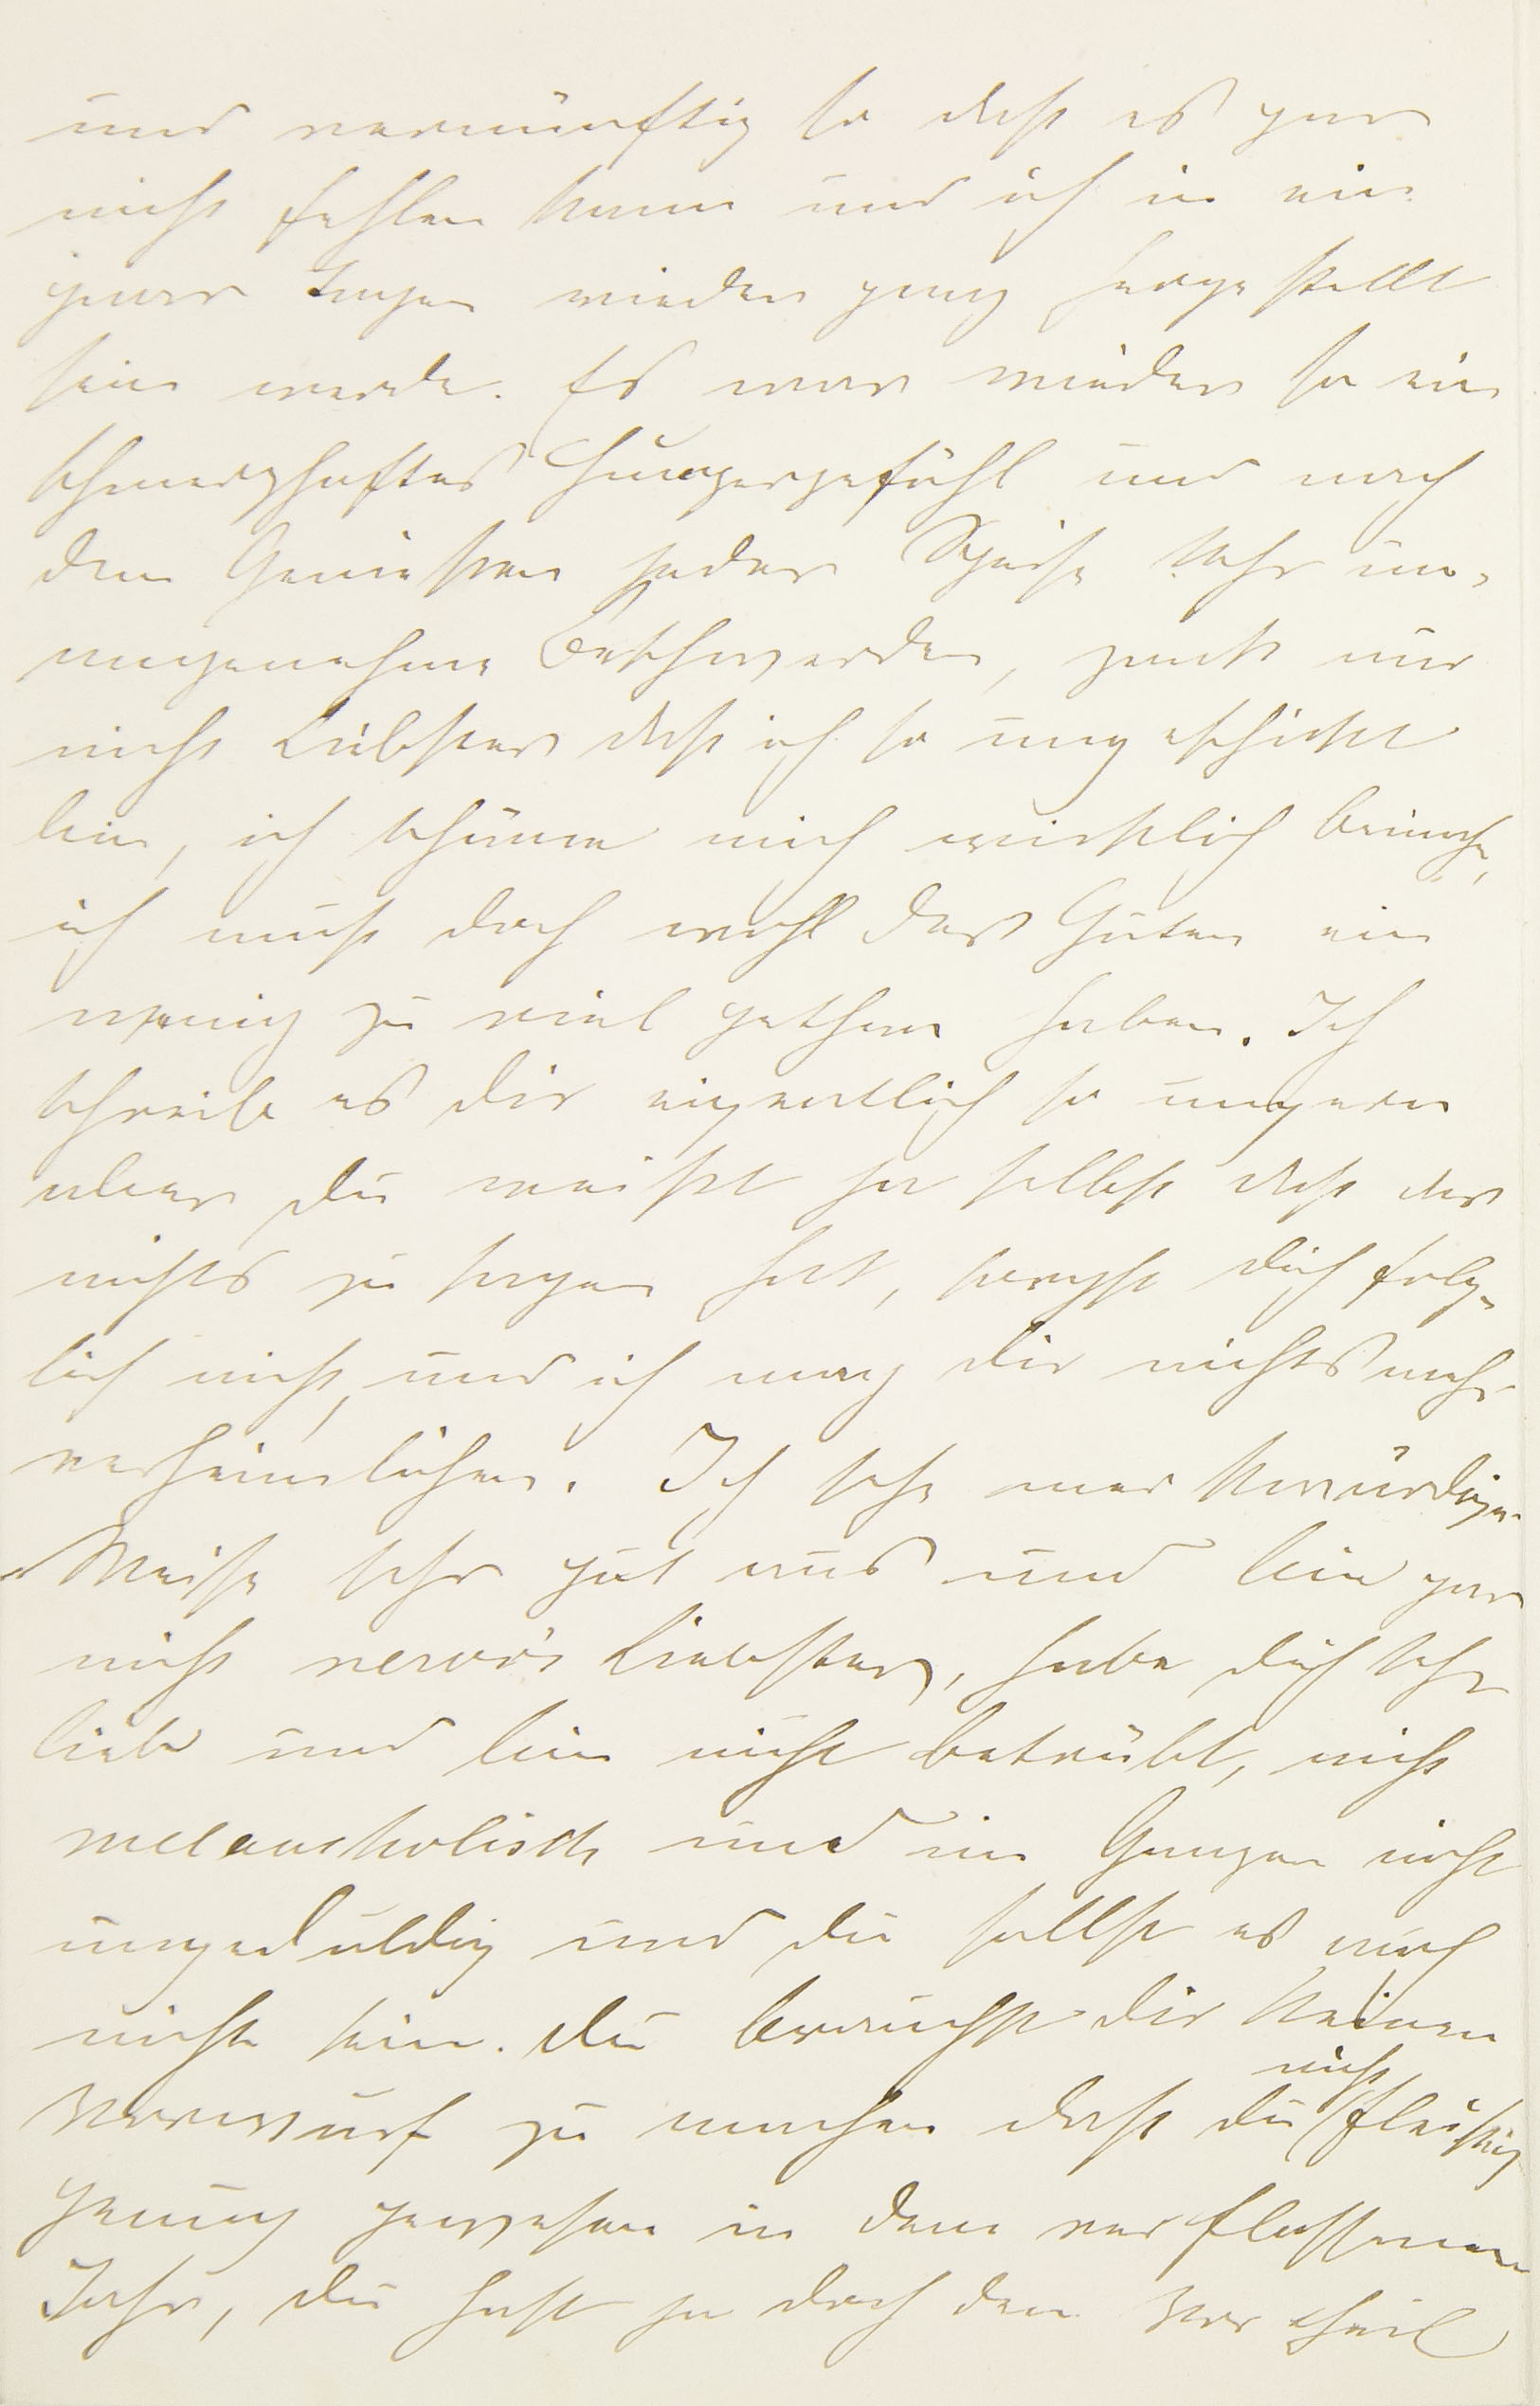 und vernünftig so daß es gar
nicht fehlen kann und ich in ein
paar Tagen wieder ganz hergestellt
sein werde. Es war wieder so ein
schmerzhaftes Hungergefühl und nach
dem Genießen jeder Speise sehr un-
angenehme Beschwerden, zank nur
nicht Liebster daß ich so ungeschickt
bin, ich schäme mich wirklich beinahe,
ich muß doch wohl des Guten ein
wenig zu viel gethan haben. Ich
schreibe es dir eigentlich so ungern
aber du weißt ja selbst daß das
nichts zu sagen hat, sorgst dich folg-
lich nicht, und ich mag dir nichts mehr
verheimlichen. Ich sehe merkwürdiger
Weise sehr gut aus und bin gar
nicht nervös Liebster, habe dich sehr
lieb und bin nicht betrübt, nicht
melancholisch und im Ganzen nicht
ungeduldig und du sollst es auch
nicht sein. Du brauchst dir keinen
Vorwurf zu machen daß du nicht fleißig
genug gewesen in dem verflossenen
Jahr, du hast ja doch den Vortheil